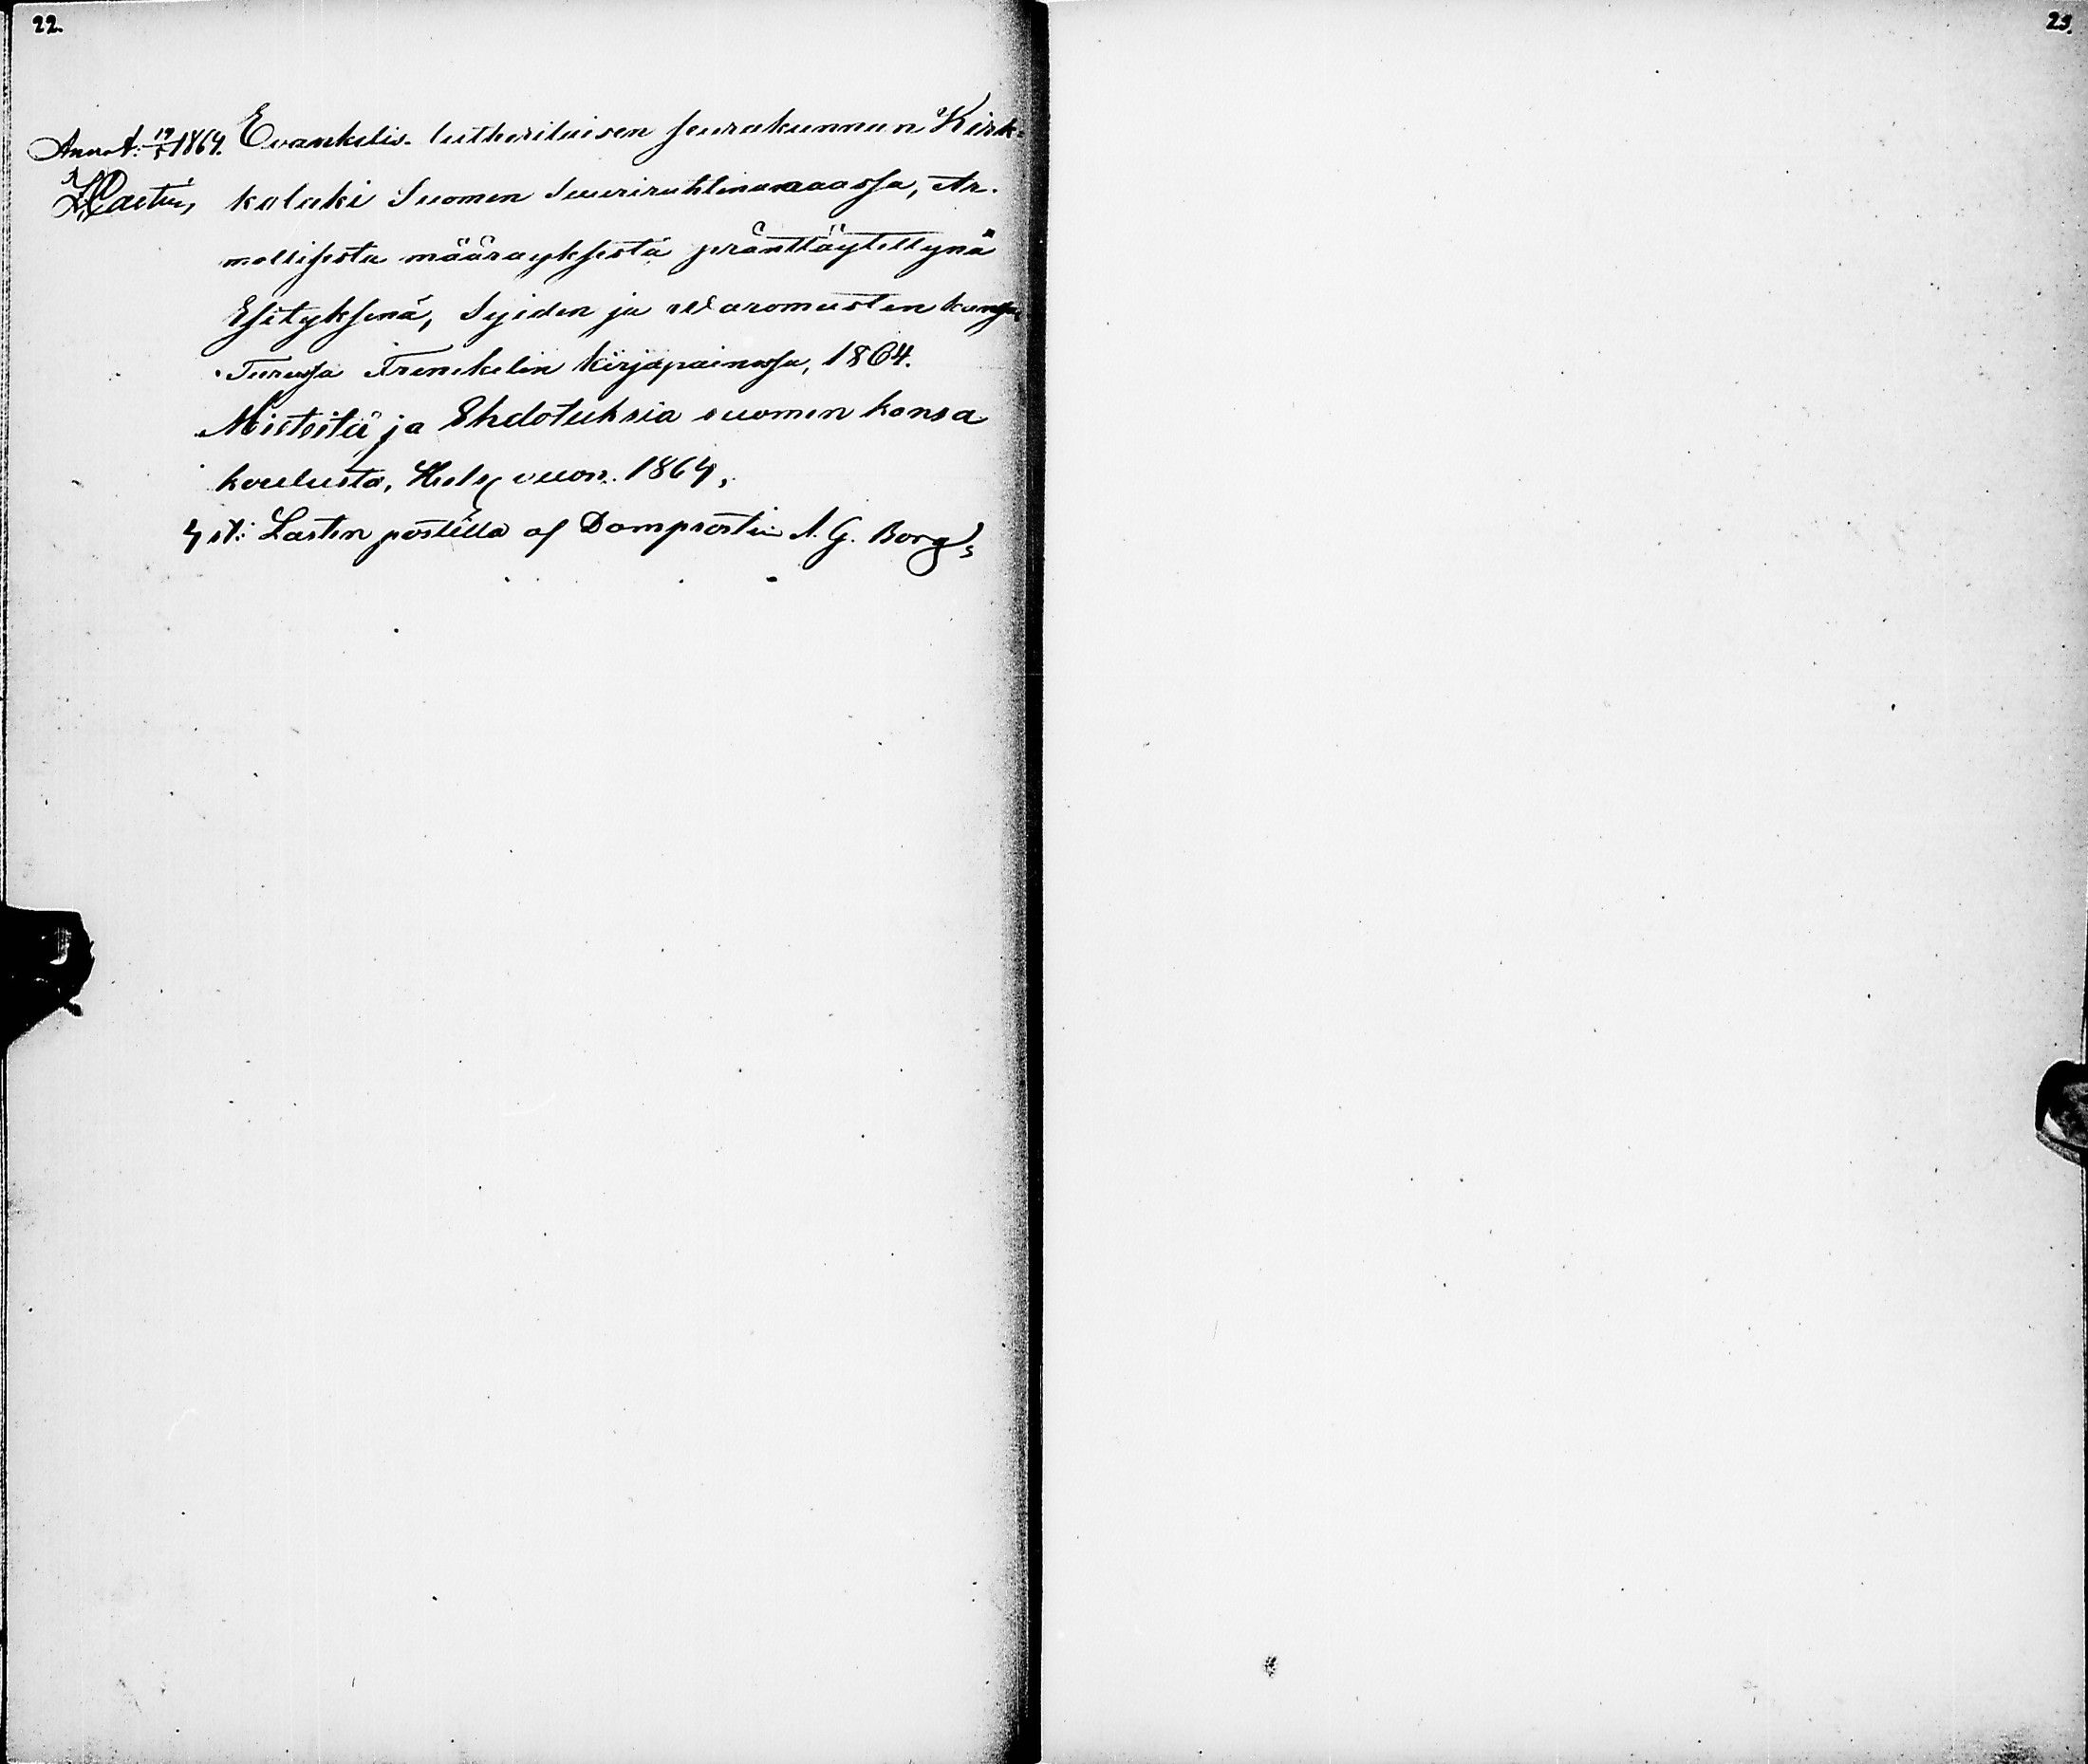 22.
23.
Ann. A: 19/5 1864. Evankelis. lutherilaisen seurakunnan Kirk-
kolaki Suomen Suuriruhtinanmaassa, Ar-
mollisesta määräyksestä pränttäytettynä
Esityksenä, Syiden ja Waromusten kanssa
Turussa Frenckelin kirjapainossa, 1864.
Mietteitä ja Ehdotuksia suomen kansa
koulusta, Hels vuon. 1864,
4 st: Lasten postilla af Domprostin A. G. Borg,